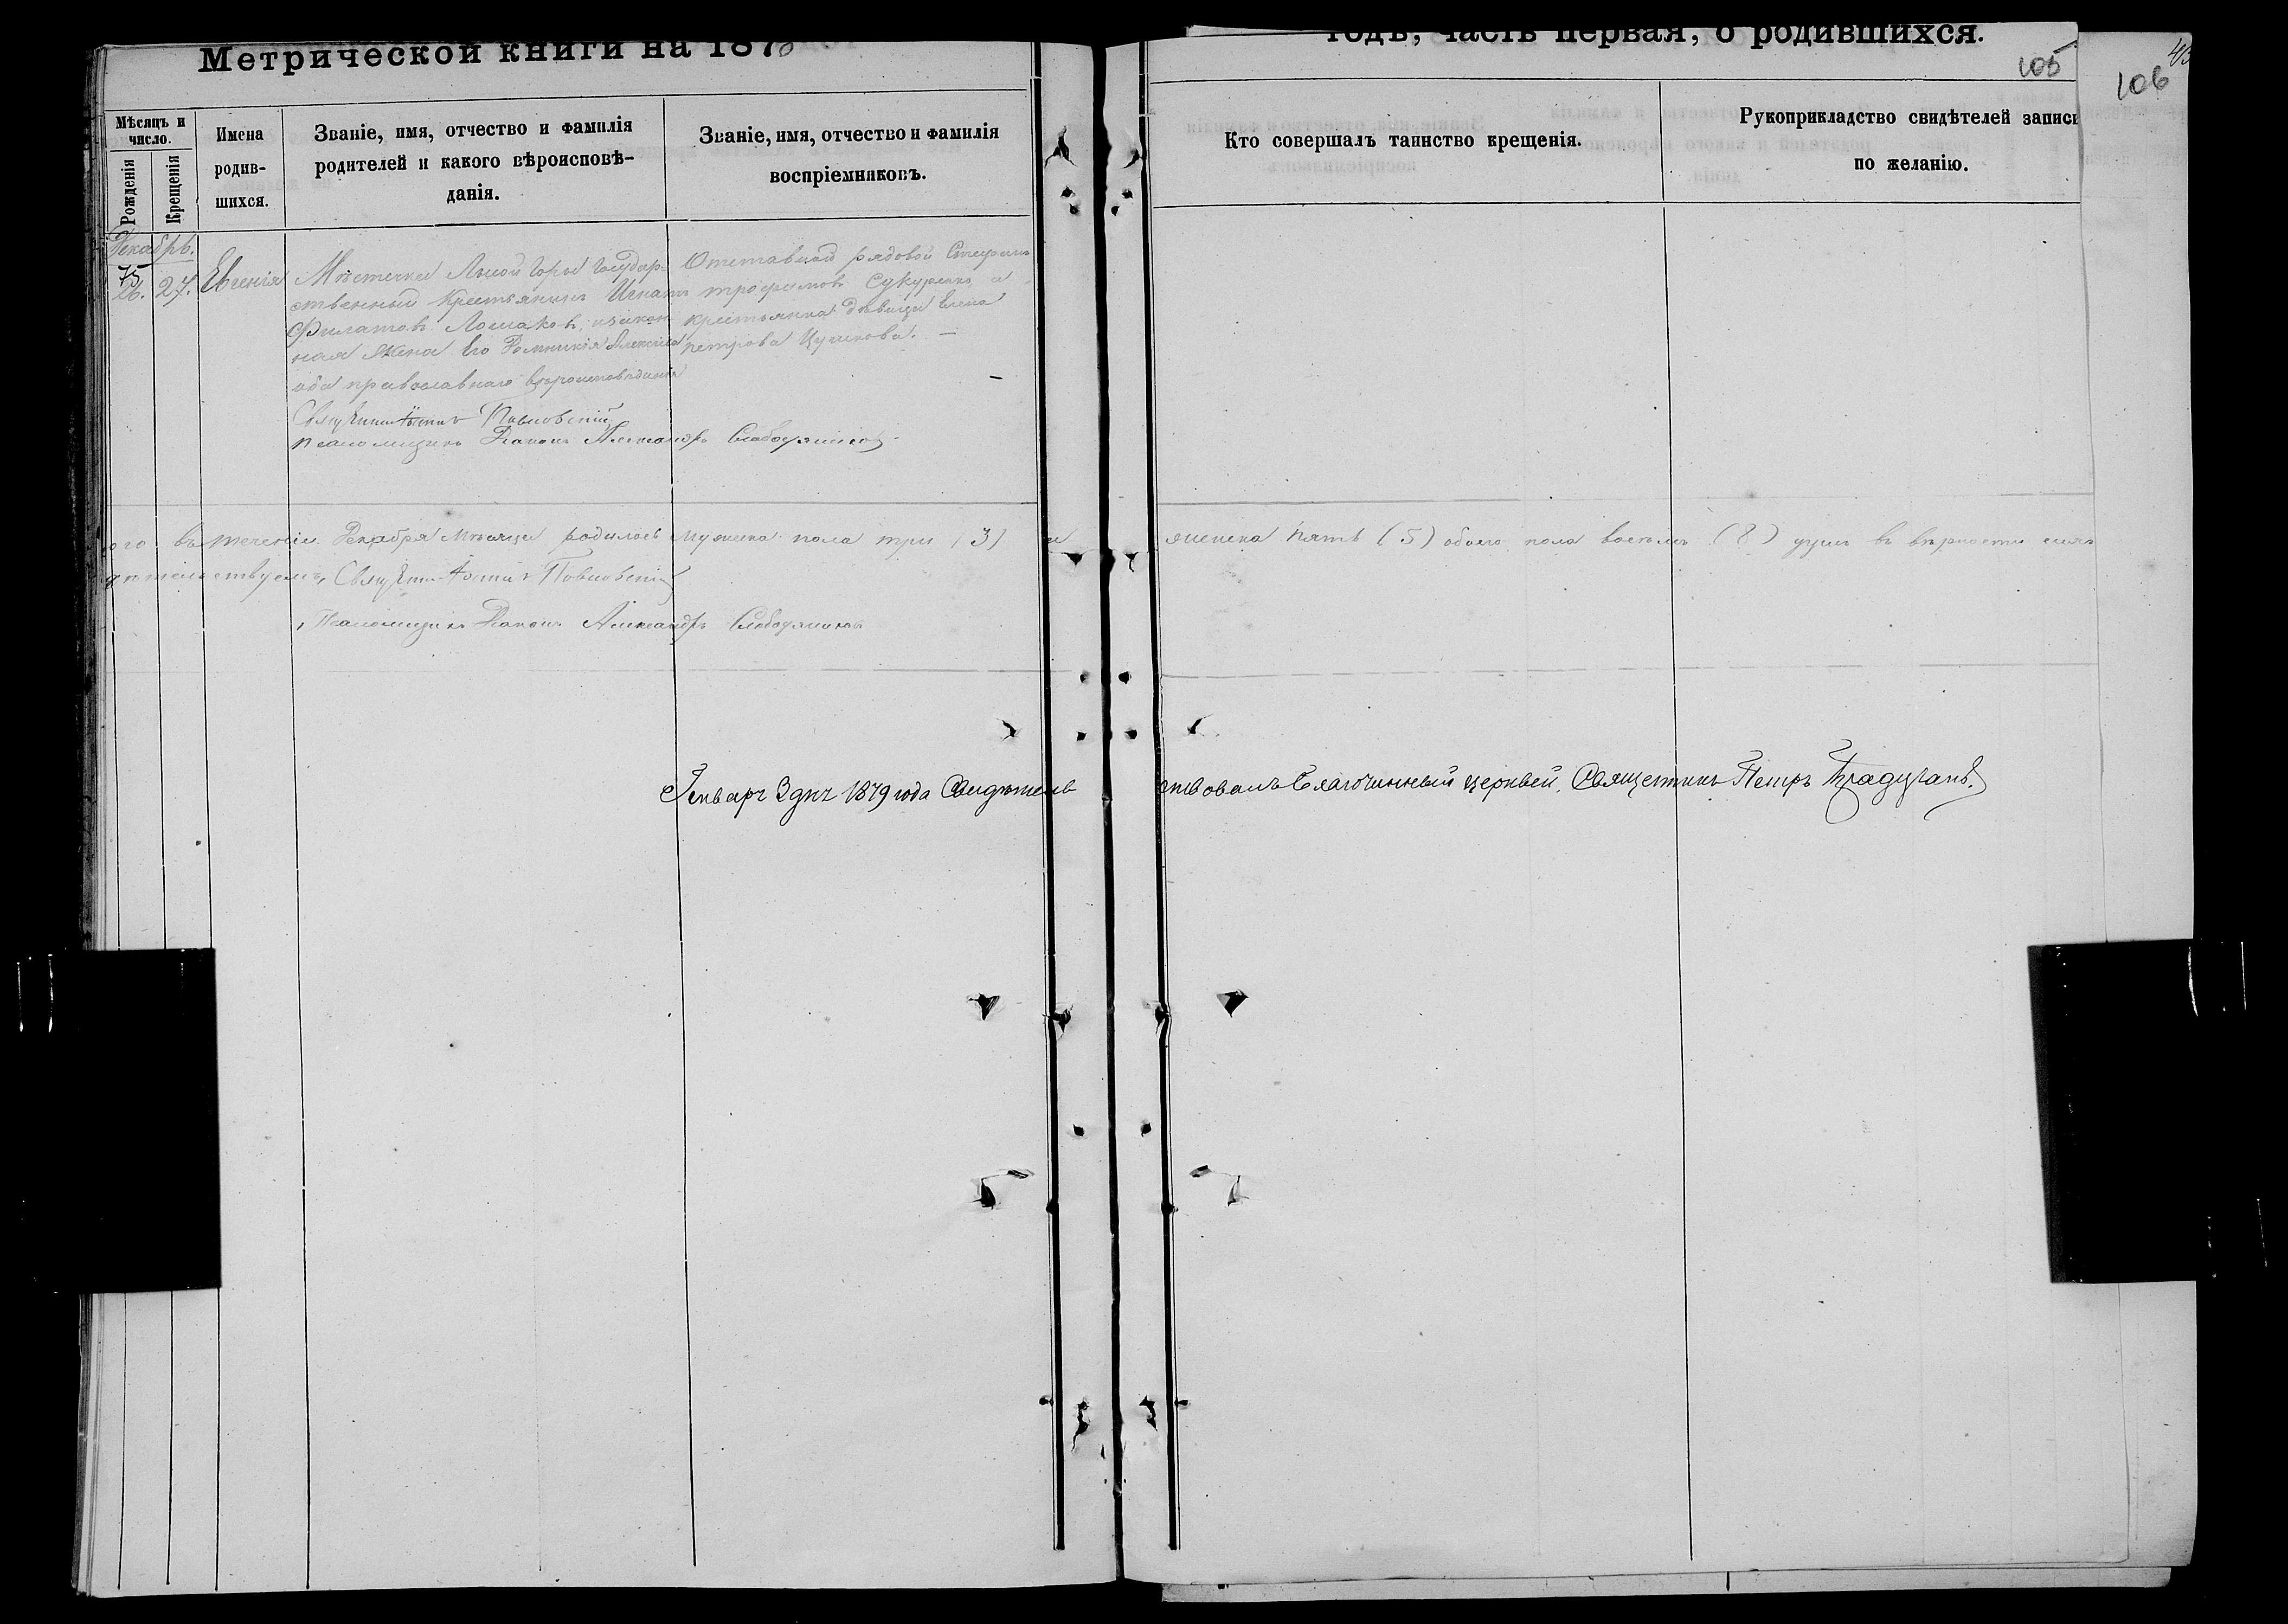 Метрической книги на 1878
годъ, часть первая, о родившихся.
105
106
Мѣсяцъ и число.
Рожденія
Крещенія
Имена родив-
шихся.
Званіе, имя, отчество и фамилія
родителей и какого вѣроисповѣ-
данія.
Званіе, имя, отчество и фамилія
воспріемниковъ.
Кто совершалъ таинство крещенія.
Рукоприкладство свидѣтелей записи
по желанію.
Декабрь.
75
26. 27. Евгенія
Мѣстечка Лысой Горы Государ-
ственный крестьянинъ Игнатъ
Филатовъ Лошаковъ, и закон-
ная жена Его Домникія Алексіева
оба православнаго вѣроисповѣданія
Отставной рядовой Стефанъ
Трофимовъ Сукуренко и
крестьянка дѣвица Елена
Петрова
Священникъ
Псаломщикъ Діаконъ Александръ
въ теченіи Декабря мѣсяца родилось мужеска пола три (3) и женска пять (5) обоего пола восемь (8) душъ въ вѣрности сего
свидѣтельствуемъ, Священникъ
Псаломщикъ Діаконъ Александръ
Генваря 2 дня 1879 года Свидѣтельствовалъ Благочинный церквей, Священникъ Петръ